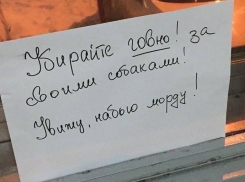 Убирайте говно! за
своими собаками!
Увижу, набью морду!